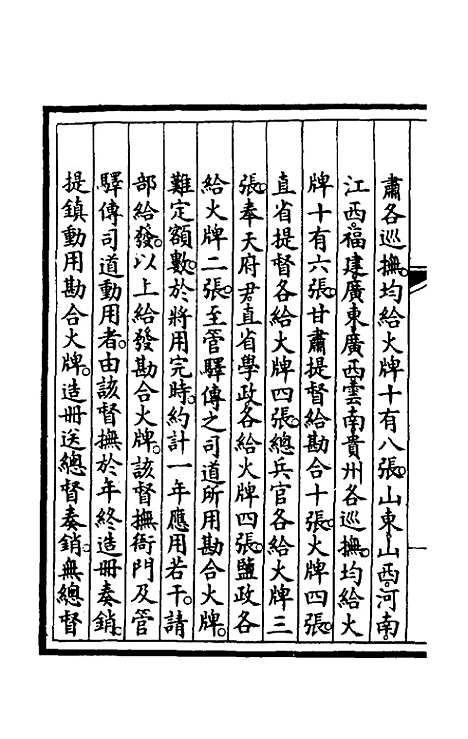 肅各巡撫。均給火牌十有八張。山東山西河南。
江西。福建。廣東。廣西雲南貴州各巡撫。均給火
牌十有六張。甘肅提督給勘合十張。火牌四張。
直省提督各給火牌四張。總兵官各給火牌三
張。奉天府尹。直省學政各給火牌四張。鹽政各
給火牌二張。至管驛傳之司道所用勘合火牌。
難定額數。於將用完時。約計一年應用若干。請
部給發。以上給發勘合火牌。該督撫衙門及管
驛傳司道動用者。由該督撫於年終造冊奏銷。
提鎮動用勘合火牌。造冊送總督奏銷。無總督